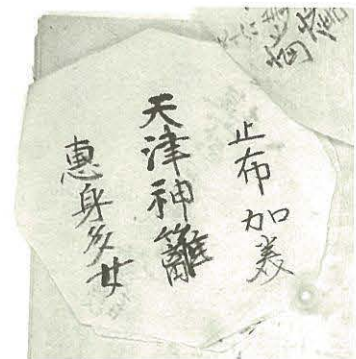 止布加美
天津神籬
惠身多女